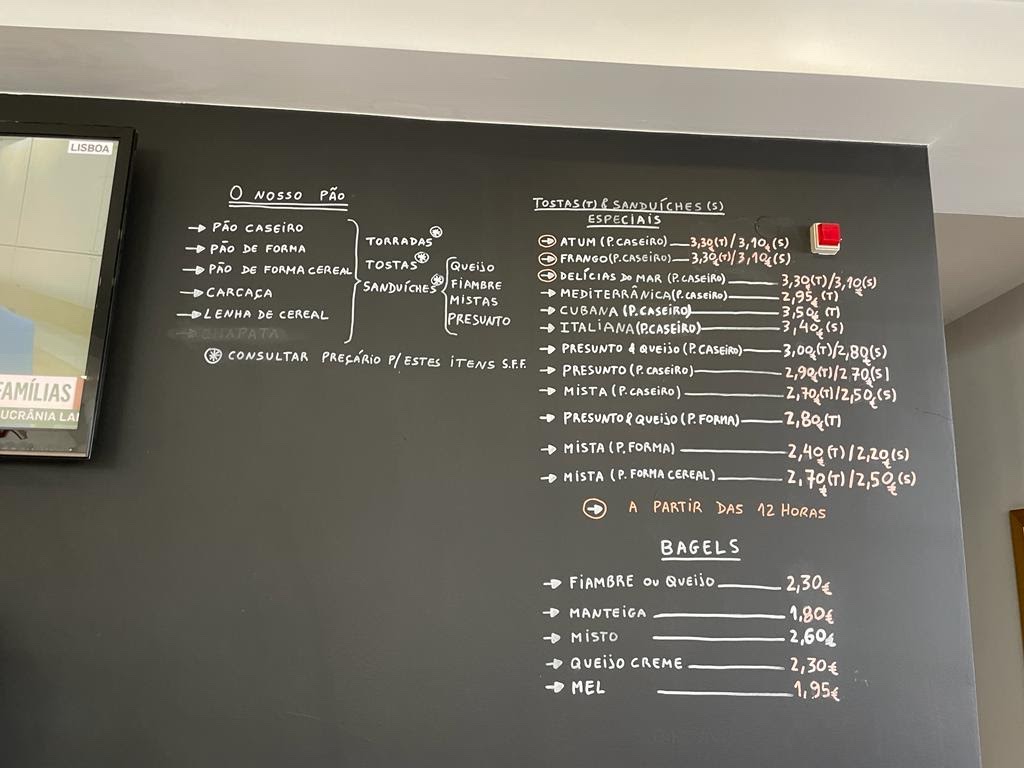 LISBOA
FAMÍLIAS
UCRÂNIA LA
O NOSSO PÃO
→ PÃO CASEIRO
→ PÃO DE FORMA
→ PÃO DE FORMA CEREAL
→ CARCAÇA
→ LENHA DE CEREAL
CHAPATA
TORRADAS ⊛
TOSTAS ⊛
SANDUÍCHES ⊛
QUEIJO
FIAMBRE
MISTAS
PRESUNTO
⊛ CONSULTAR PREÇÁRIO P/ESTES ITENS S.F.F.
TOSTAS(T) & SANDUÍCHES (S)
ESPECIAIS
→ ATUM (P.CASEIRO) — 3,30€(T)/3,10€(S)
→ FRANGO (P.CASEIRO) — 3,30€(T)/3,10€(S)
→ DELÍCIAS DO MAR (P.CASEIRO) — 3,30(T)/3,10(S)
→ MEDITERRÂNICA (P.CASEIRO) — 2,95€(T)
→ CUBANA (P.CASEIRO) — 3,50€(T)
→ ITALIANA (P.CASEIRO) — 3,40€(S)
→ PRESUNTO & QUEIJO (P.CASEIRO) — 3,00€(T)/2,80€(S)
→ PRESUNTO (P.CASEIRO) — 2,90€(T)/2,70€(S)
→ MISTA (P.CASEIRO) — 2,70€(T)/2,50€(S)
→ PRESUNTO & QUEIJO (P.FORMA) — 2,80€(T)
→ MISTA (P.FORMA) — 2,40€(T)/2,20€(S)
→ MISTA (P.FORMA CEREAL) — 2,70€(T)/2,50€(S)
→ A PARTIR DAS 12 HORAS
BAGELS
→ FIAMBRE OU QUEIJO — 2,30€
→ MANTEIGA — 1,80€
→ MISTO — 2,60€
→ QUEIJO CREME — 2,30€
→ MEL — 1,95€